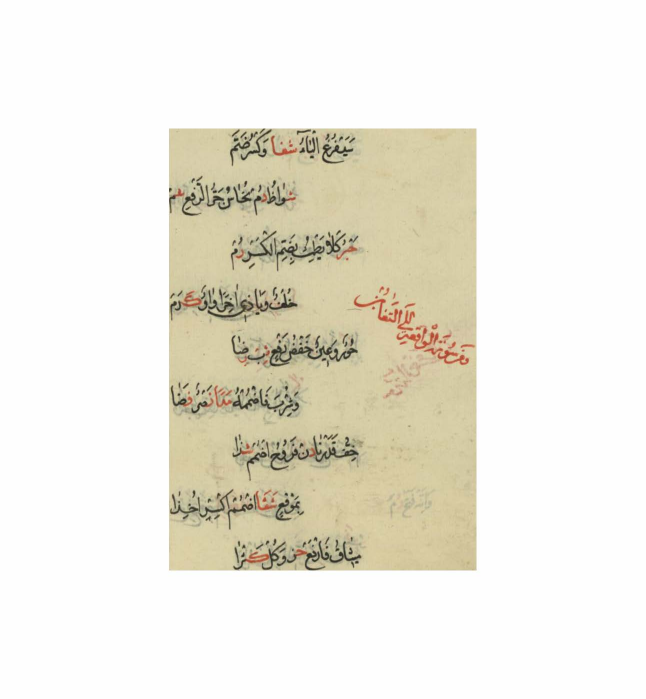 سَيَفْرُغُ الْيَاءُ شَفَا وَكَسْرُ ضَمّ
شواظ دم نحاس جر الرفع شم
حبر كلا يطمث بضم الكسر رم
خلف وياذي اخرا واو كرم
ومن سورة الواقعة الى التغابن
حور وعين خفض رفع ثب رضا
وشرب فاضممه مدا نصر فضا
خف قدرنا دن فروح اضمم غذا
بموقع شفا اضمم اكسر اخذا
ميثاق فارفع حز وكل كثرا